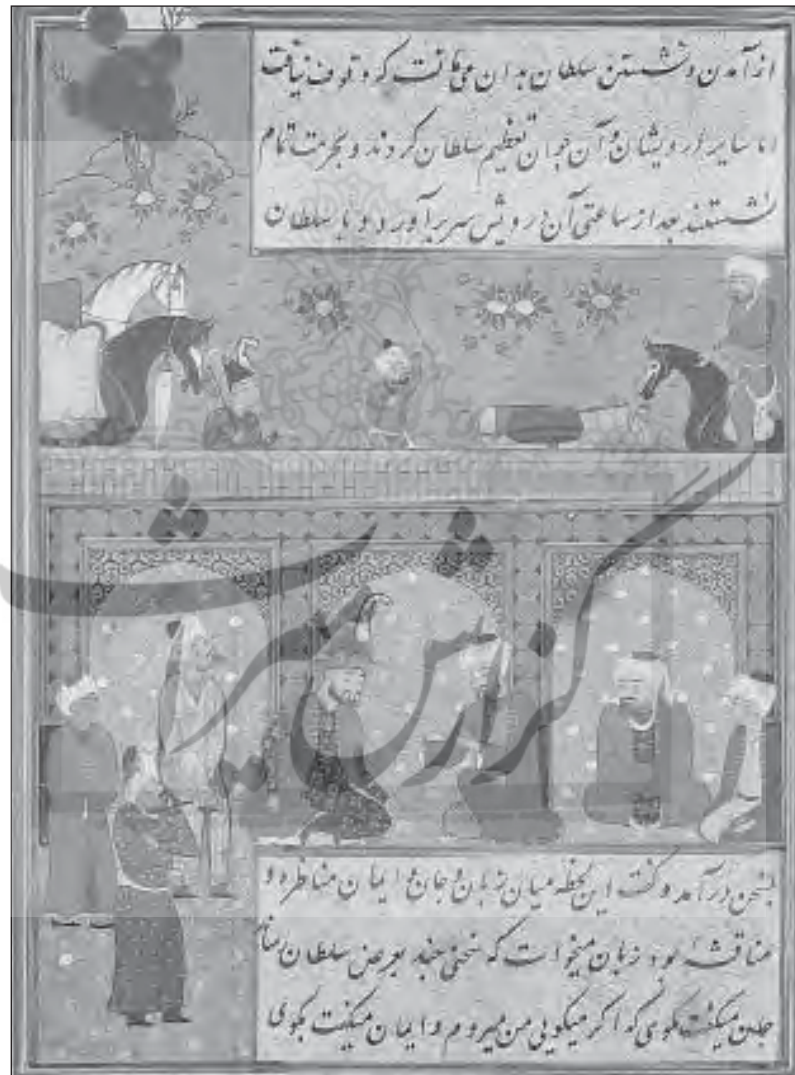 از آمدن و نشستن سلطان بدان می‌مانست که وقوف نیافت
اما سایر درویشان و آن جوان تعظیم سلطان کردند و بحرمت تمام
نشستند بعد از ساعتی آن درویش سر برآورد و با سلطان
گزارش میراث
بسخن درآمد و گفت این لحظه میان زبان و جان و ایمان مناظره و
مناقشه بود زبان میخواست که سخنی چند بعرض سلطان رساند
جان میگفت مگوی که اگر میگویی من میروم و ایمان میگفت بگوی